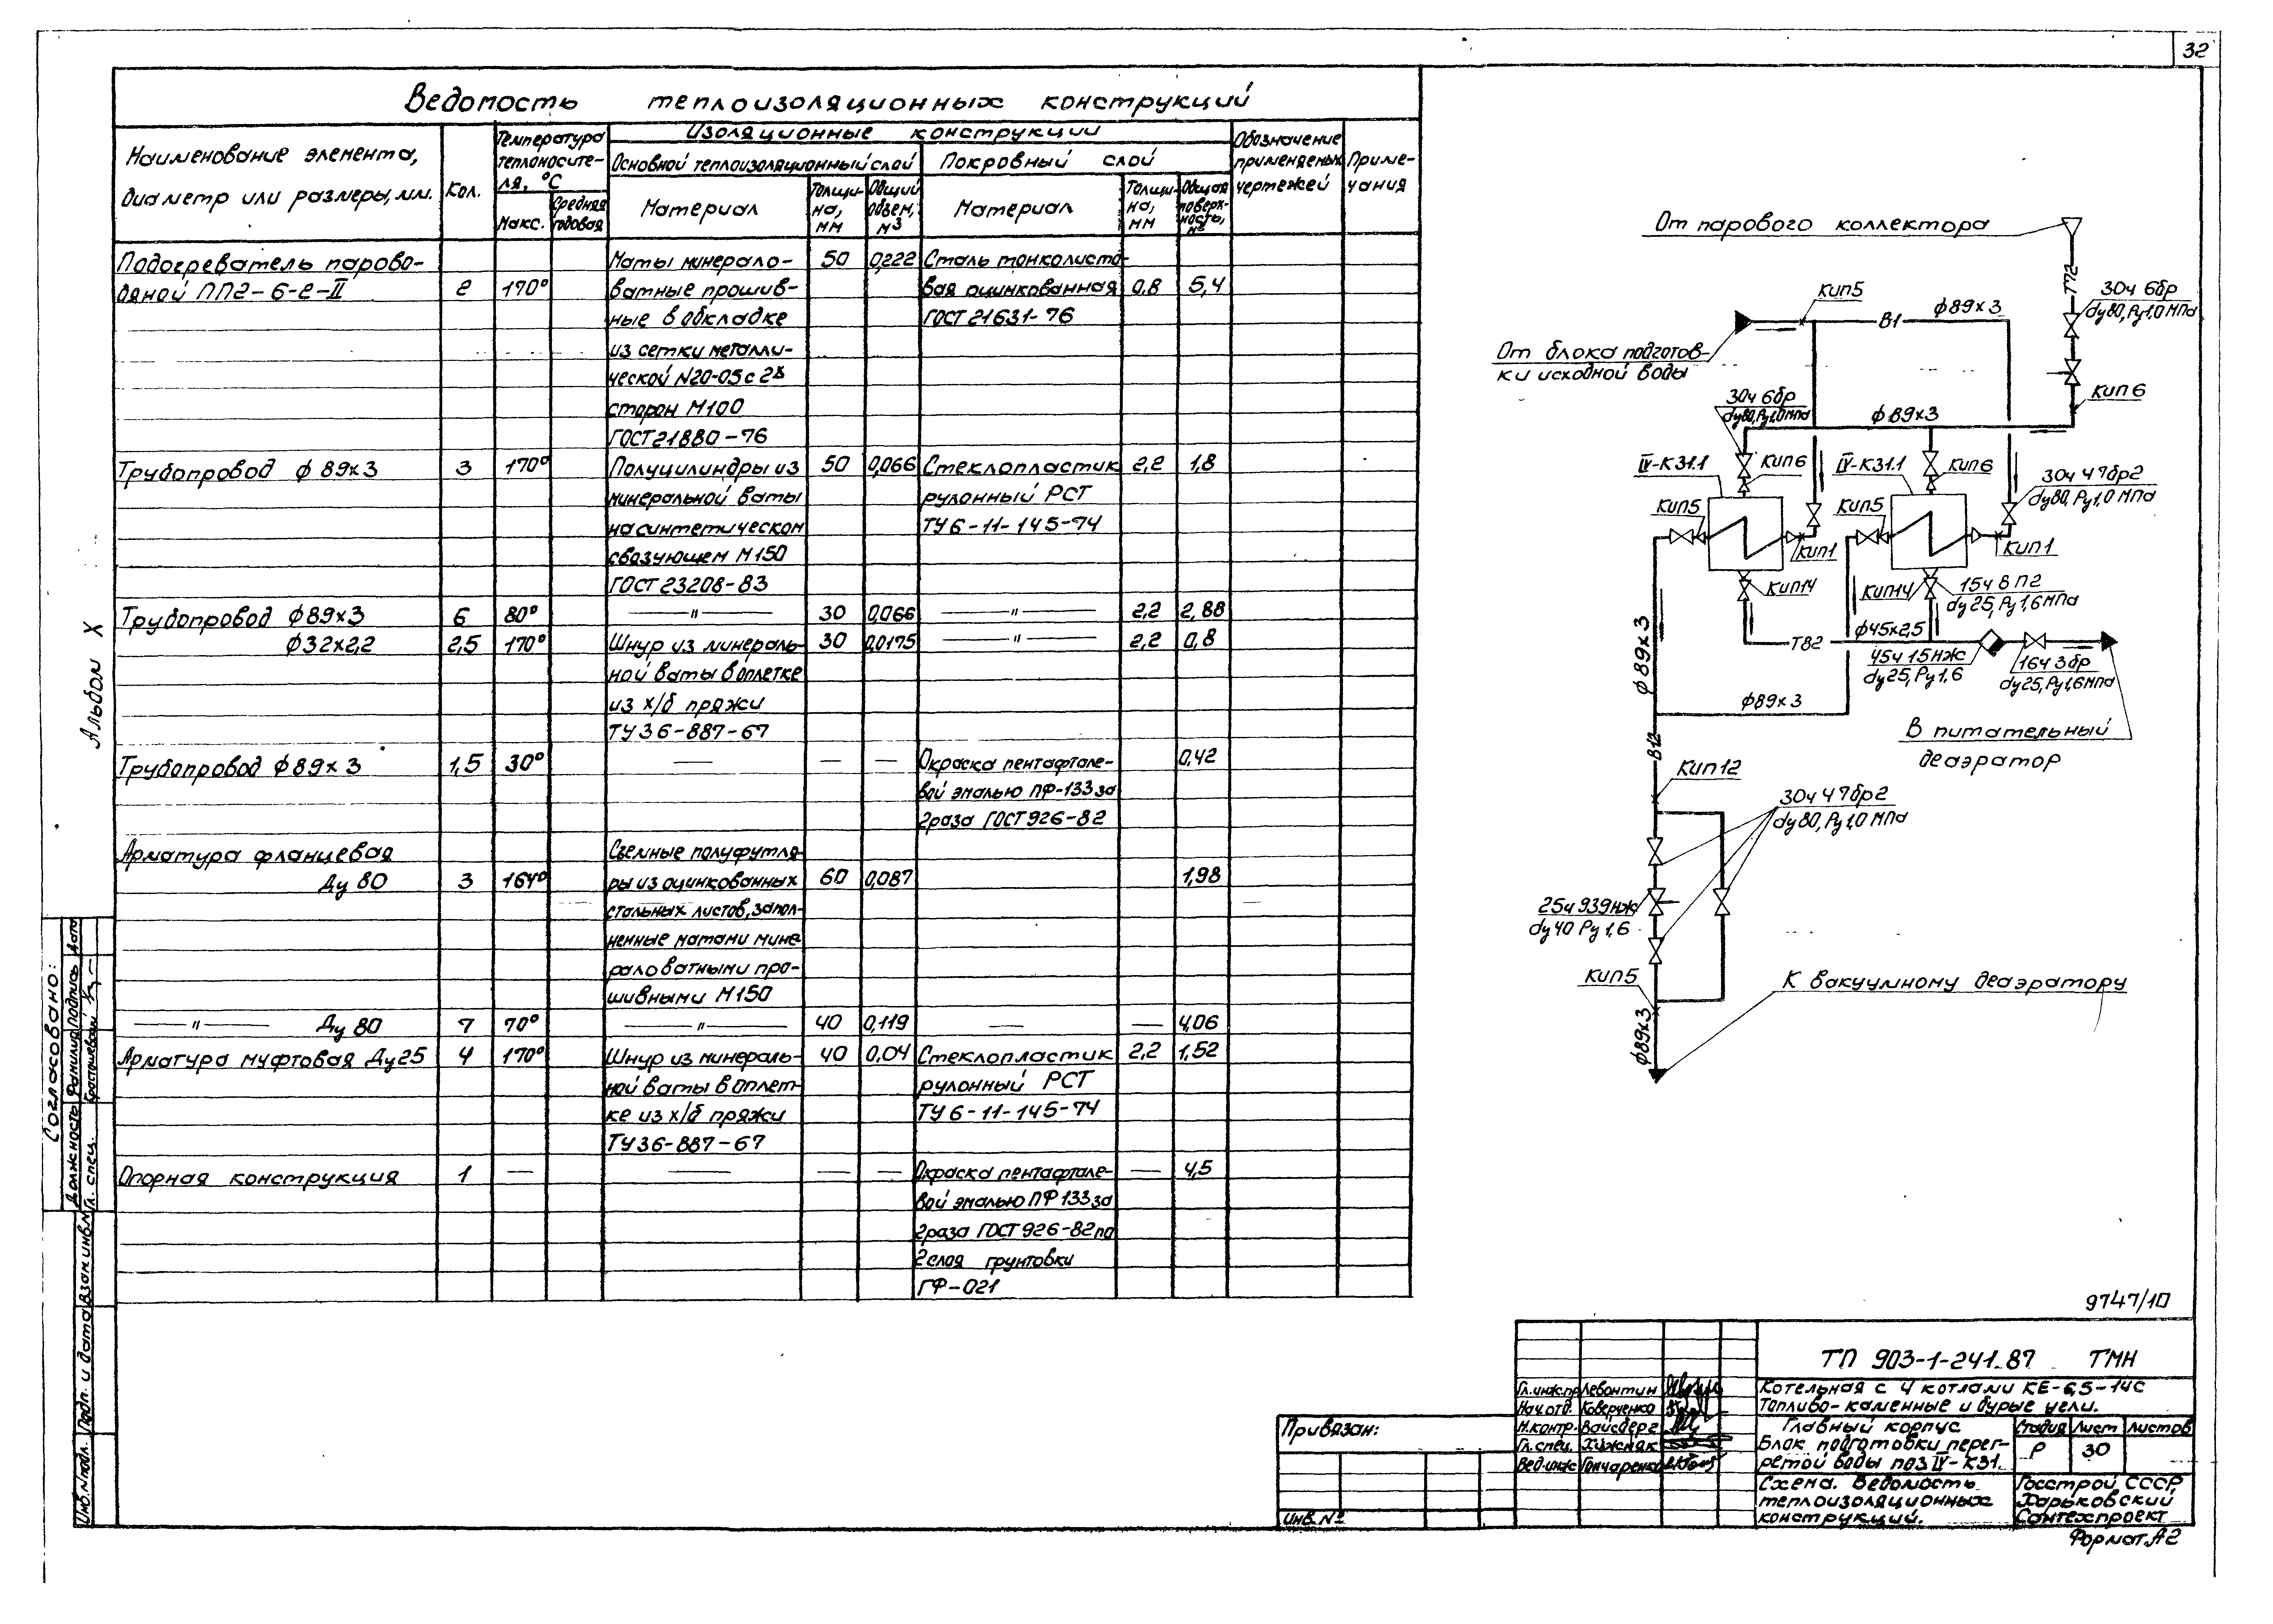 32
Ведомость теплоизоляционных конструкций
Наименование элемента,
диаметр или размеры, мм.
Кол.
Температура
теплоносите-
ля, °С
Макс.
Средняя
годовая
Изоляционные конструкции
Основной теплоизоляционный слой
Покровный слой
Материал
Толщи-
на,
мм
Общий
объем,
м3
Материал
Толщи-
на,
мм
Общая
поверх-
ность,
м2
Обозначение
применяемых
чертежей
Приме-
чания
Подогреватель парово-
дяной ПП2-6-2-II 2 170°
Маты минерало-
ватные прошив-
ные в обкладке
из сетки металли-
ческой N20-05 с 2х
сторон М100
ГОСТ 21880-76
50 0,222
Сталь тонколисто-
вая оцинкованная 0,8 5,4
ГОСТ 21631-76
Трубопровод ф 89х3 3 170°
Полуцилиндры из
минеральной ваты
на синтетическом
связующем М150
ГОСТ 23208-83
50 0,066
Стеклопластик 2,2 1,8
рулонный РСТ
ТУ6-11-145-74
Трубопровод ф89х3 6 80° — " — 30 0,066 — " — 2,2 2,88
ф32х2,2 2,5 170° Шнур из минераль- 30 0,0175 — " — 2,2 0,8
ной ваты в оплетке
из х/б пряжи
ТУ36-887-67
Трубопровод ф89х3 1,5 30° — — — Окраска пентафтале- 0,42
вой эмалью ПФ-133 за
2 раза ГОСТ 926-82
Арматура фланцевая
Ду 80 3 164°
Съемные полуфутля-
ры из оцинкованных 60 0,087 1,98
стальных листов, запол-
ненные матами мине
раловатными про-
шивными М150
— " — Ду 80 7 70° — " — 40 0,119 — — 4,06
Арматура муфтовая Ду25 4 170° Шнур из минераль- 40 0,04 Стеклопластик 2,2 1,52
ной ваты в оплет-
ке из х/б пряжи
ТУ36-887-67
рулонный РСТ
ТУ6-11-145-74
Опорная конструкция 1 — — — — Окраска пентафтале- — 4,5
вой эмалью ПФ 133 за
2 раза ГОСТ 926-82 по
2 слоя грунтовки
ГФ-021
От парового коллектора
Т72
КИП5
30ч 6бр
dу80, Ру1,0 МПа
В1
ф89х3
От блока подготов-
ки исходной воды
КИП6
30ч 6бр
dу80, Ру1,0 МПа
ф89х3
IV-К31.1
КИП6
IV-К31.1
КИП6
30ч 47бр2
dу80, Ру1,0 МПа
КИП5
КИП5
КИП1
КИП1
КИП14
КИП14
15ч 8п2
dу25, Ру1,6МПа
ф89х3
Т82
ф45х2,5
45ч 15нж
dу25, Ру1,6
16ч 3бр
dу25, Ру1,6МПа
ф89х3
В питательный
деаэратор
В12
КИП12
30ч 47бр2
dу80, Ру1,0 МПа
25ч 939нж
dу40 Ру1,6
КИП5
К вакуумному деаэратору
ф89х3
Альбом X
Согласовано:
Должность
Фамилия
Подпись
Дата
Гл. спец.
Взам. инв. N
Подп. и дата
Инв. N подл.
9747/10
ТП 903-1-241.87 ТМН
Котельная с 4 котлами КЕ-6,5-14С
Топливо-каменные и бурые угли.
Гл.инж.пр Левонтин
Нач.отд. Коверченко
Н.контр. Вайсберг
Гл.спец. Хижняк
Вед.инж Гончаренко
Главный корпус
Блок подготовки перег-
ретой воды поз IV-К31.
Стадия Лист Листов
Р 30
Схема. Ведомость
теплоизоляционных
конструкций.
Госстрой СССР
Харьковский
Сантехпроект
Привязан:
Инв. №
Формат А2